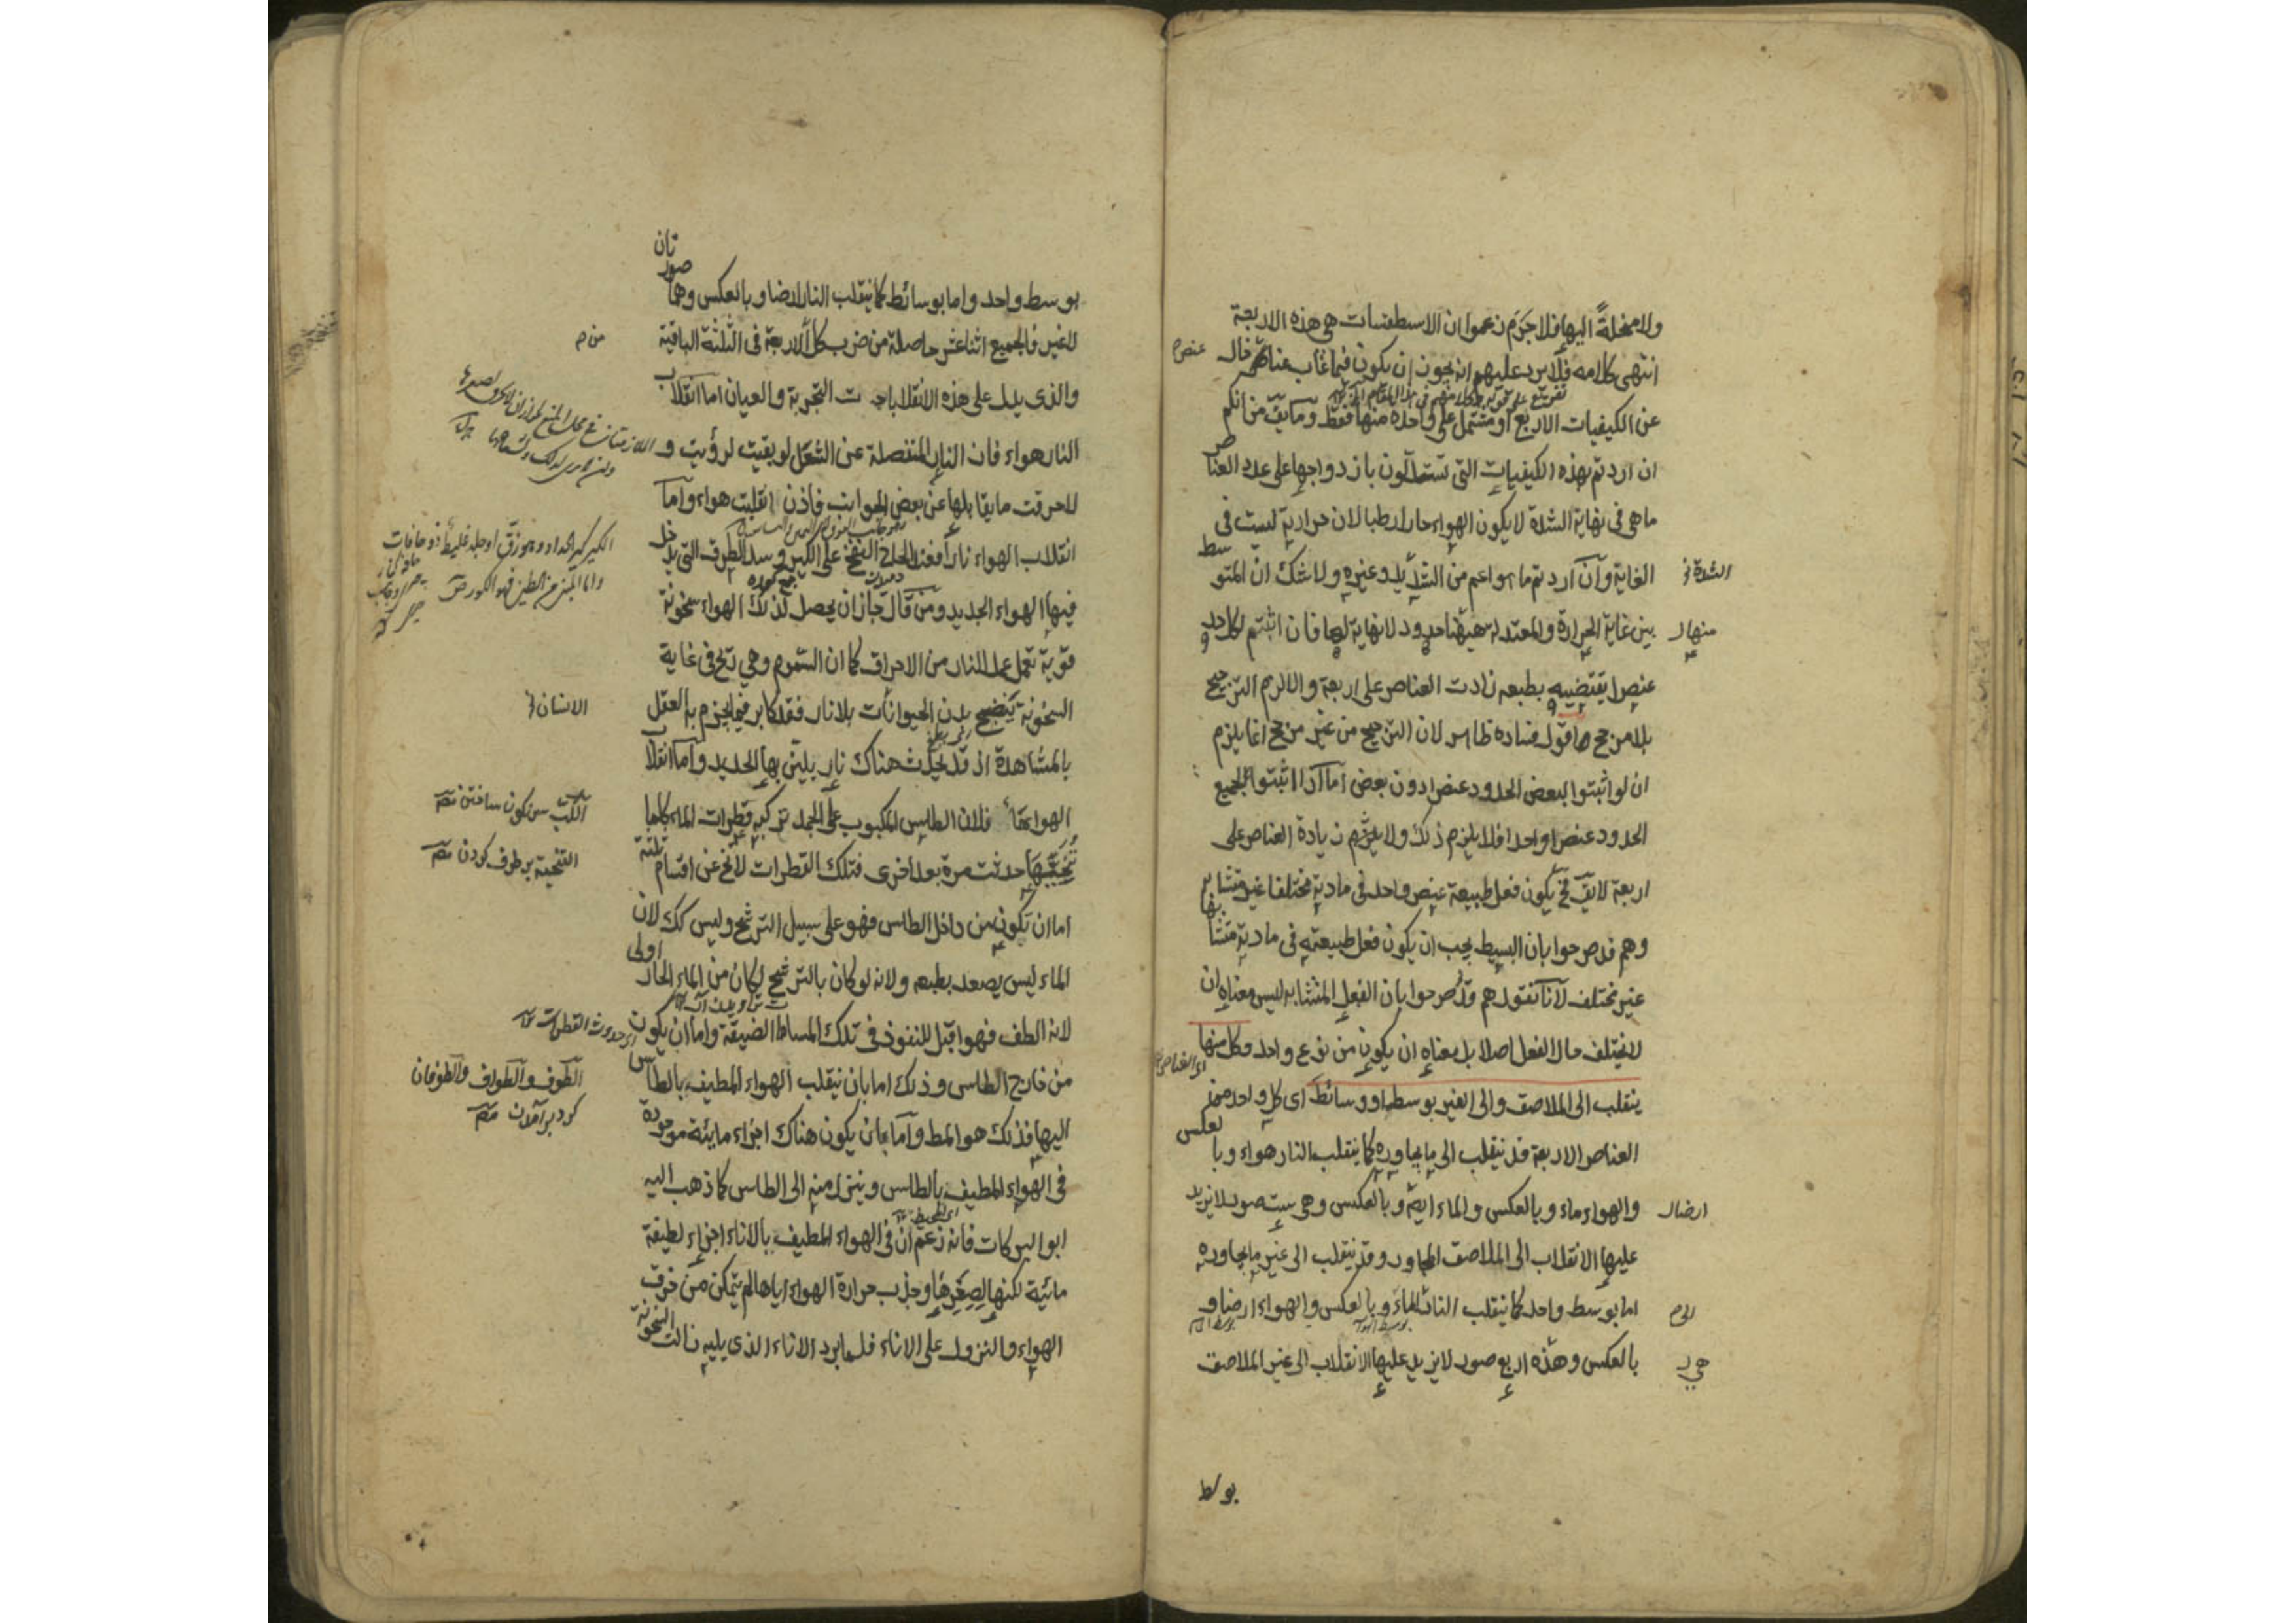 ولا منحلة اليها فلا جرم زعموا ان الاسطقسات هي هذه الاربعة
انتهى كلامه فلا يرد عليهم انه يجوز ان يكون فيما غاب عنا عنصر خال
عن الكيفيات الاربع او مشتمل على واحدة منها فقط وما يق من انكم
ان اردتم بهذه الكيفيات التي تستدلون بازدواجها على عدد العناصر
ما هي في نهاية الشدة لا يكون الهواء حارا رطبا لان حرارته ليست في
الغاية وان اردتم ما هو اعم من الشديد وغيره ولا شك ان المتوسط
بين غاية الحرارة والمعتدلة هيهنا حدود لا نهاية لها فان اثبتم لكل حد
عنصرا يقتضيه بطبعه زادت العناصر على اربعة والا لزم الترجيح
بلا مرجح اقول فساده ظاهر لان الترجيح من غير مرجح انما يلزم
ان لو اثبتوا لبعض الحدود عنصرا دون بعض اما اذا اثبتوا لجميع
الحدود عنصرا واحدا فلا يلزم ذلك ولا يلزم زيادة العناصر على
اربعة لا يق فح يكون فعل طبيعة عنصر واحد في مادته مختلفا غير متشابه
وهم قد صرحوا بان البسيط يجب ان يكون فعل طبيعته في مادته متشابها
غير مختلف لانا نقول هم قد صرحوا بان الفعل المتشابه ليس معناه ان
لا يختلف حال الفعل اصلا بل معناه ان يكون من نوع واحد وكل منها
ينقلب الى الملاصق والى الغير بوسط او وسائط اى كل واحد من
العناصر الاربعة قد ينقلب الى ما يجاوره كما ينقلب النار هواء وبالعكس
والهواء ماء وبالعكس والماء ارضا وبالعكس وهي ست صور لا يزيد
عليها الانقلاب الى الملاصق المجاور وقد ينقلب الى غير ما يجاوره
اما بوسط واحد كما ينقلب النار الماء وبالعكس والهواء ارضا و
بالعكس وهذه اربع صور لا يزيد عليها الانقلاب الى غير الملاصق
الشدة
منها
ارضا
بوسط
بوسط واحد واما بوسائط كما ينقلب النار ارضا وبالعكس وهما صورتان
لا غير فالجميع اثنا عشر حاصلة من ضرب كل الاربعة في الثلثة الباقية
والذى يدل على هذه الانقلابات التجربة والعيان اما انقلاب
النار هواء فان النار المنفصلة عن الشعل لو بقيت لرؤيت و
لاحرقت ما يقابلها عن بعض الجوانب فاذن انقلبت هواء واما
انقلاب الهواء نارا فعند الحاح النفخ على الكير وسد الطرف التي يدخل
فيها الهواء الجديد ومن قال جاز ان يحصل لذلك الهواء سخونة
قوية تعمل عمل النار من الاحراق كما ان السموم وهي ريح في غاية
السخونة ينضج بدن الحيوانات بلا نار فقد كابر فيما يجزم به العقل
بالمشاهدة اذ قد يحدث هناك نار يلين بها الحديد واما انقلاب
الهواء ماء فلان الطاس المكبوب على الجمد تركبه قطرات الماء كلما
نحيتها حدثت مرة بعد اخرى فتلك القطرات لا تخ عن اقسام ثلثة
اما ان تكون من داخل الطاس فهو على سبيل الترشح وليس كك لان
الماء ليس يصعد بطبعه ولانه لو كان بالترشح لكان من الماء الحار اولى
لانه الطف فهو اقبل للنفوذ في تلك المسام الضيقة واما ان يكون
من خارج الطاس وذلك اما بان ينقلب الهواء المطيف بالطاس
اليها فذلك هو المط واما بان يكون هناك اجزاء مايئة موجودة
في الهواء المطيف بالطاس وينزل منه الى الطاس كما ذهب اليه
ابو البركات فانه زعم ان في الهواء المطيف بالاناء اجزاء لطيفة
مائية لكنها لصغرها وجذب حرارة الهواء اياها لم يتمكن من خرق
الهواء والنزول على الاناء فلما برد الاناء الذى يليه زالت السخونة
الانسان
الكب سرنكون ساختن
التنحية برطرف كردن
حدوث القطرات
الطوف والطواف والطوفان
كرد برآمدن